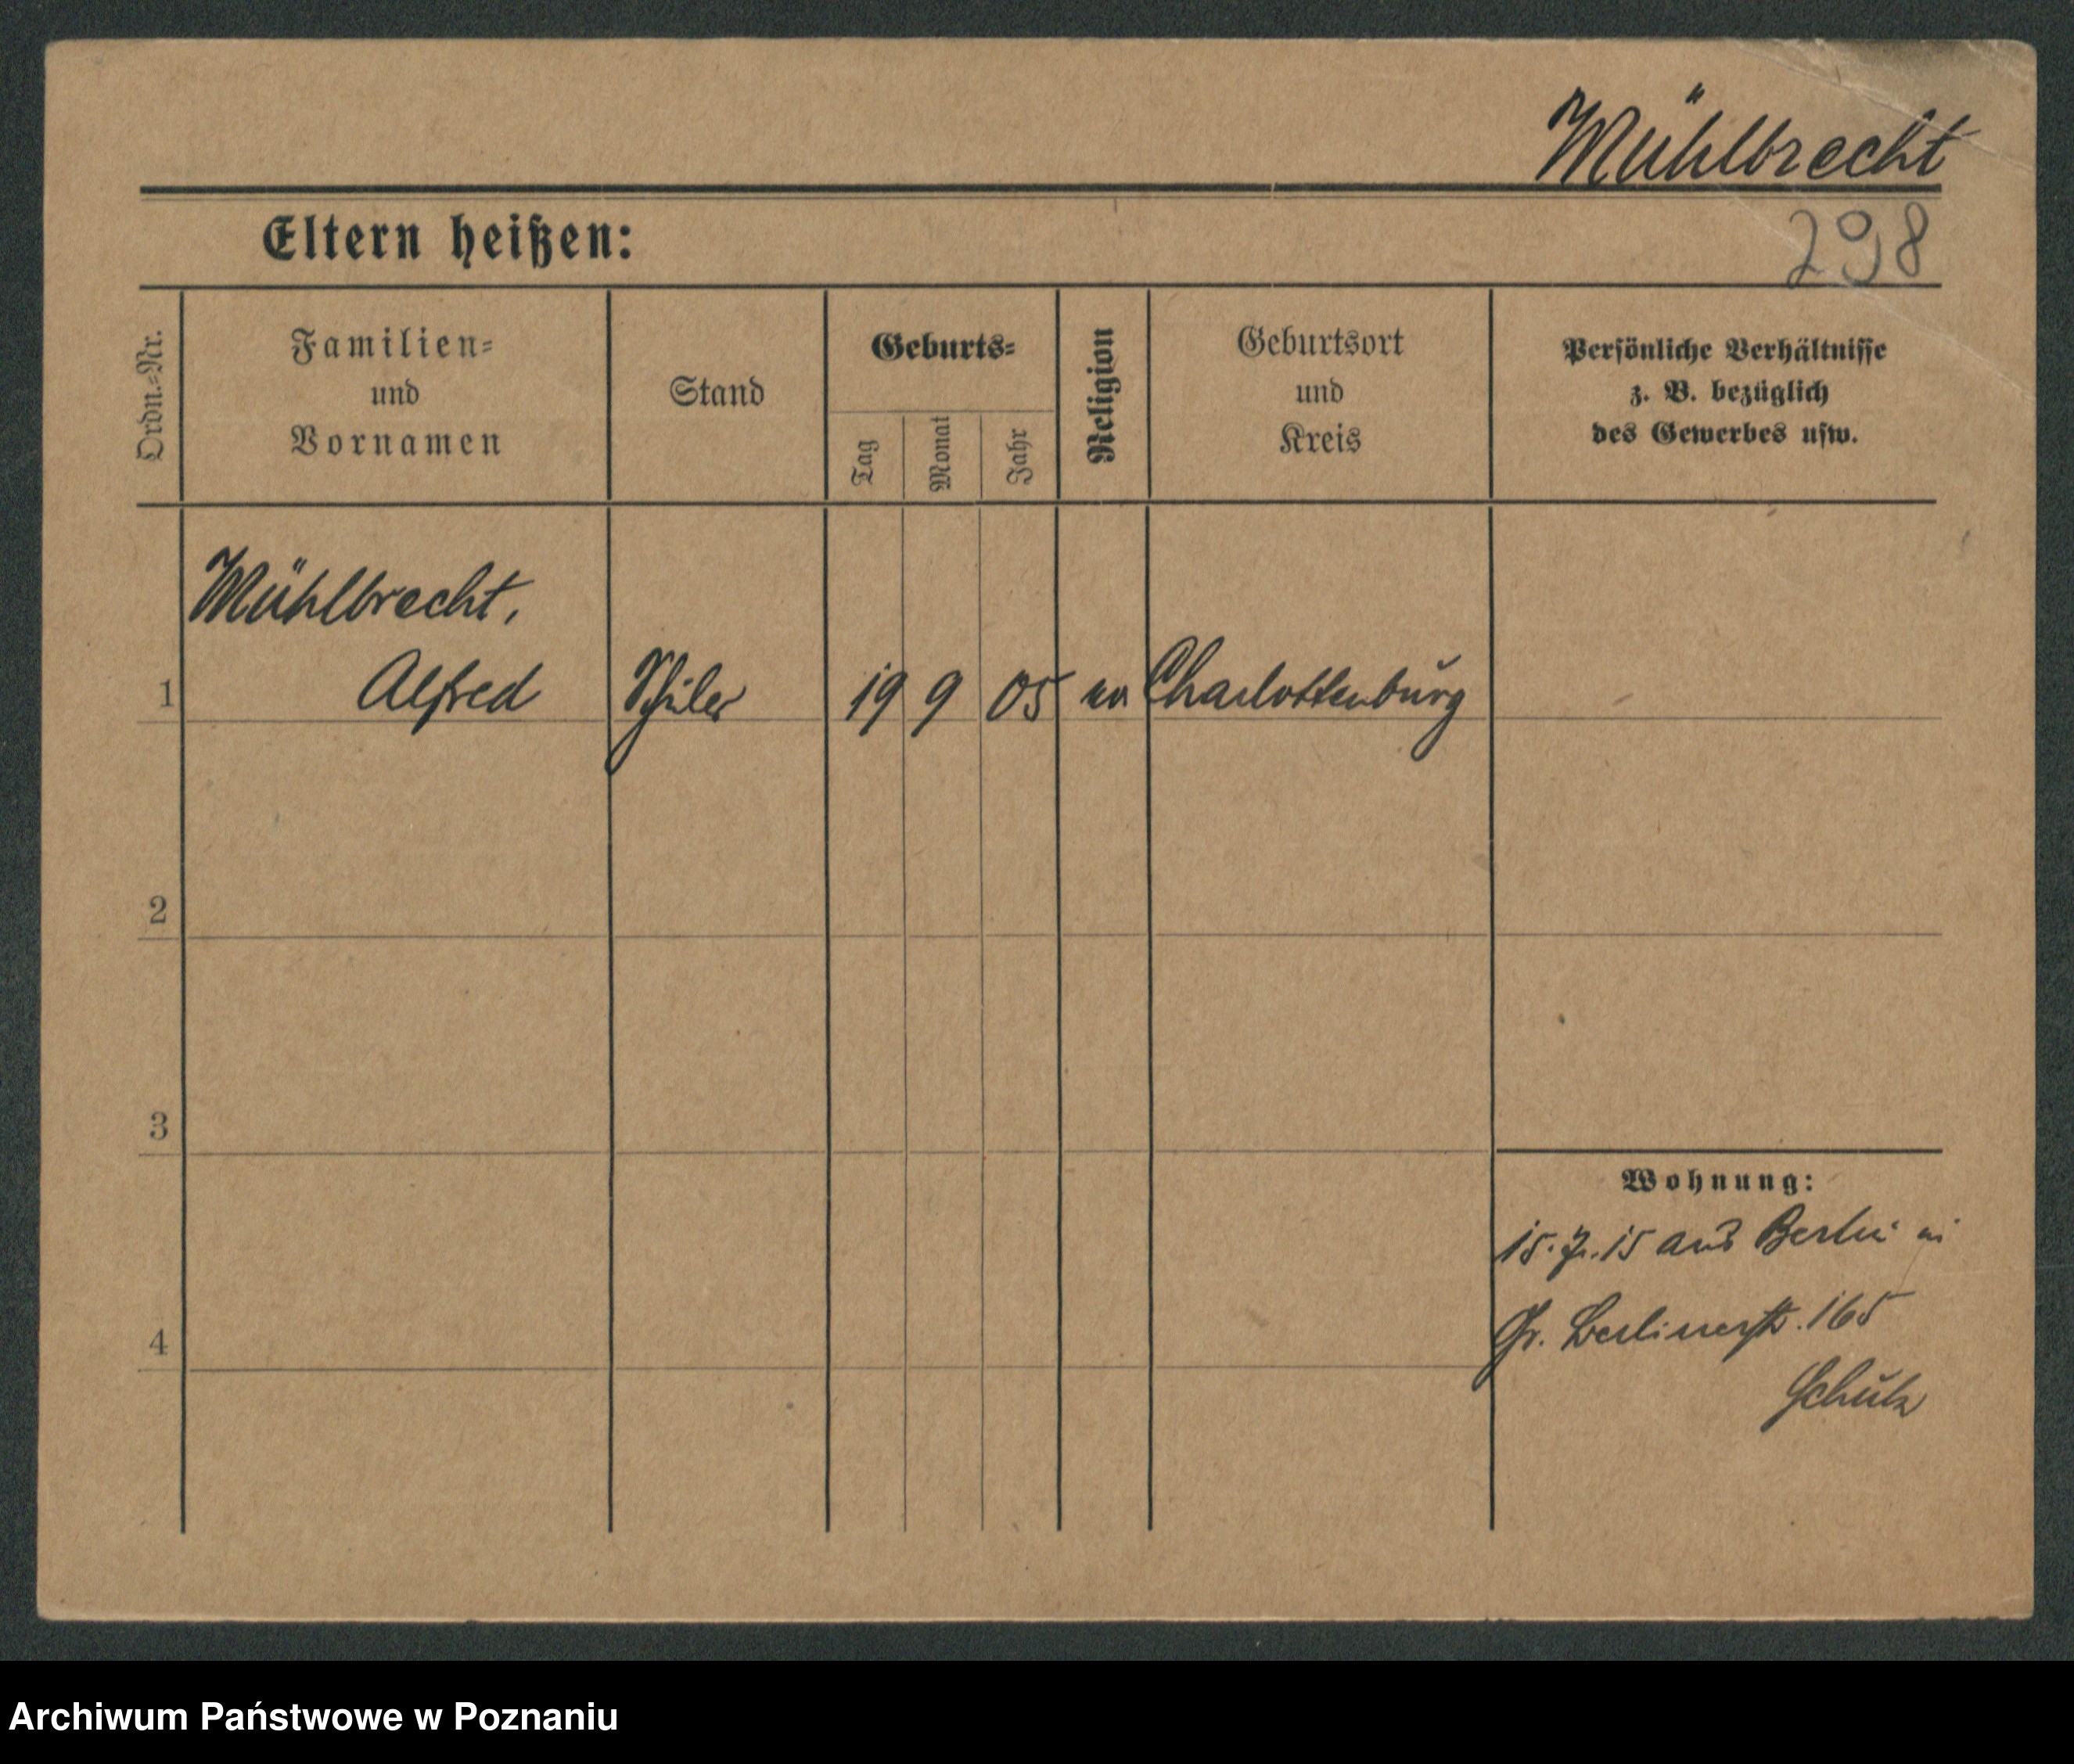 Mühlbrecht
Eltern heißen:
298
Ordn.-Nr.
Familien-
und
Vornamen
Stand
Geburts-
Tag
Monat
Jahr
Religion
Geburtsort
und
Kreis
Persönliche Verhältnisse
z. B. bezüglich
des Gewerbes usw.
Mühlbrecht,
1 Alfred Schüler 19 9 05 Charlottenburg
2
3
4
Wohnung:
15. 7. 15 aus Berlin in
Gr. Berlinerstr. 165
Schulz
Archiwum Państwowe w Poznaniu